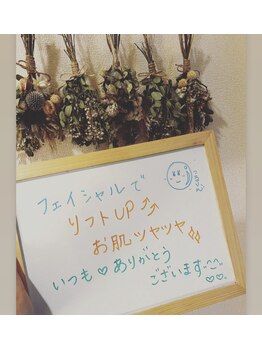 フェイシャルで
リフトUP⤴⤴
お肌ツヤツヤ✨
いつも♡ありがとう
ございます◡̈♡♡